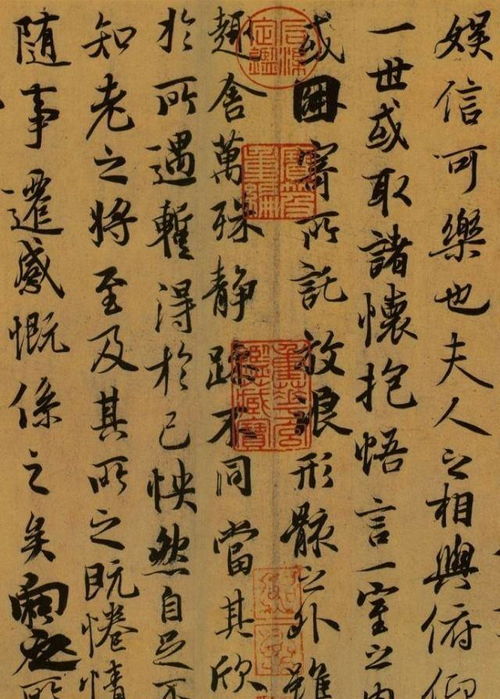 娛信可樂也夫人之相與俯仰
一世或取諸懷抱悟言一室之內
或因寄所託放浪形骸之外雖
趣舍萬殊静躁不同當其欣
於所遇暫得於己怏然自足不
知老之將至及其所之既惓情
随事遷感慨係之矣向之所